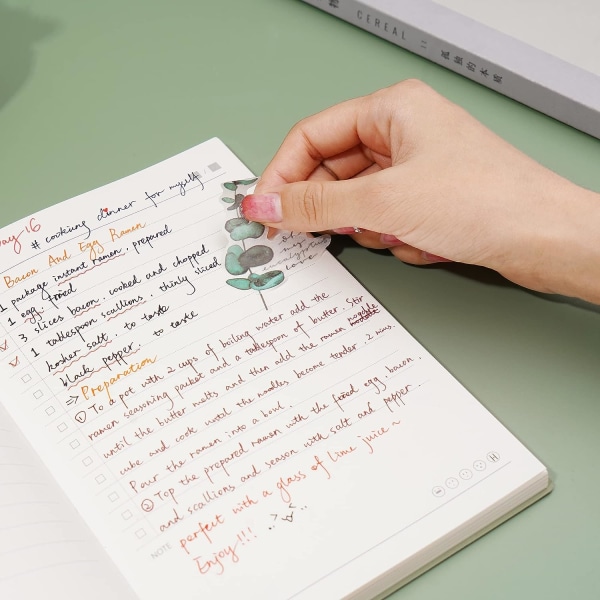 CEREAL
孤独的本质
Day-16
# cooking dinner for myself
Bacon And Egg Ramen
1 package instant ramen, prepared
1 egg, fried
3 slices bacon, cooked and chopped
1 tablespoon scallions, thinly sliced
kosher salt, to taste
black pepper, to taste
=> Preparation
① To a pot with 2 cups of boiling water add the
ramen seasoning packet and a tablespoon of butter. Stir
until the butter melts and then add the ramen noodle
cube and cook until the noodles become tender, 2 mins.
Pour the ramen into a bowl.
② Top the prepared ramen with the fried egg, bacon,
and scallions and season with salt and pepper.
perfect with a glass of lime juice ~
Enjoy!!!
NOTE
love